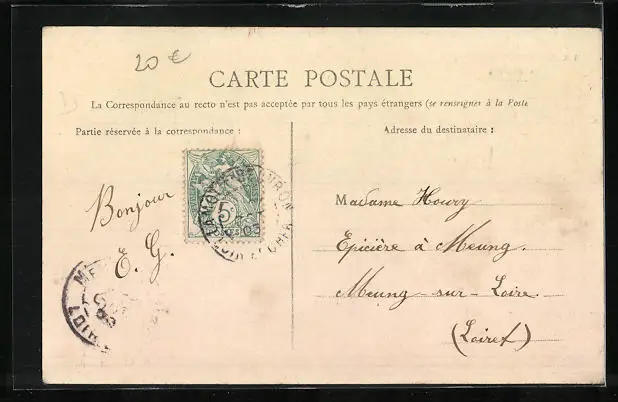 20 €
CARTE POSTALE
La Correspondance au recto n'est pas acceptée par tous les pays étrangers (se renseigner à la Poste
Partie réservée à la correspondance :
Adresse du destinataire :
Bonjour
E. G.
5
Madame Houry
Epicière à Meung.
Meung-sur-Loire.
(Loiret)